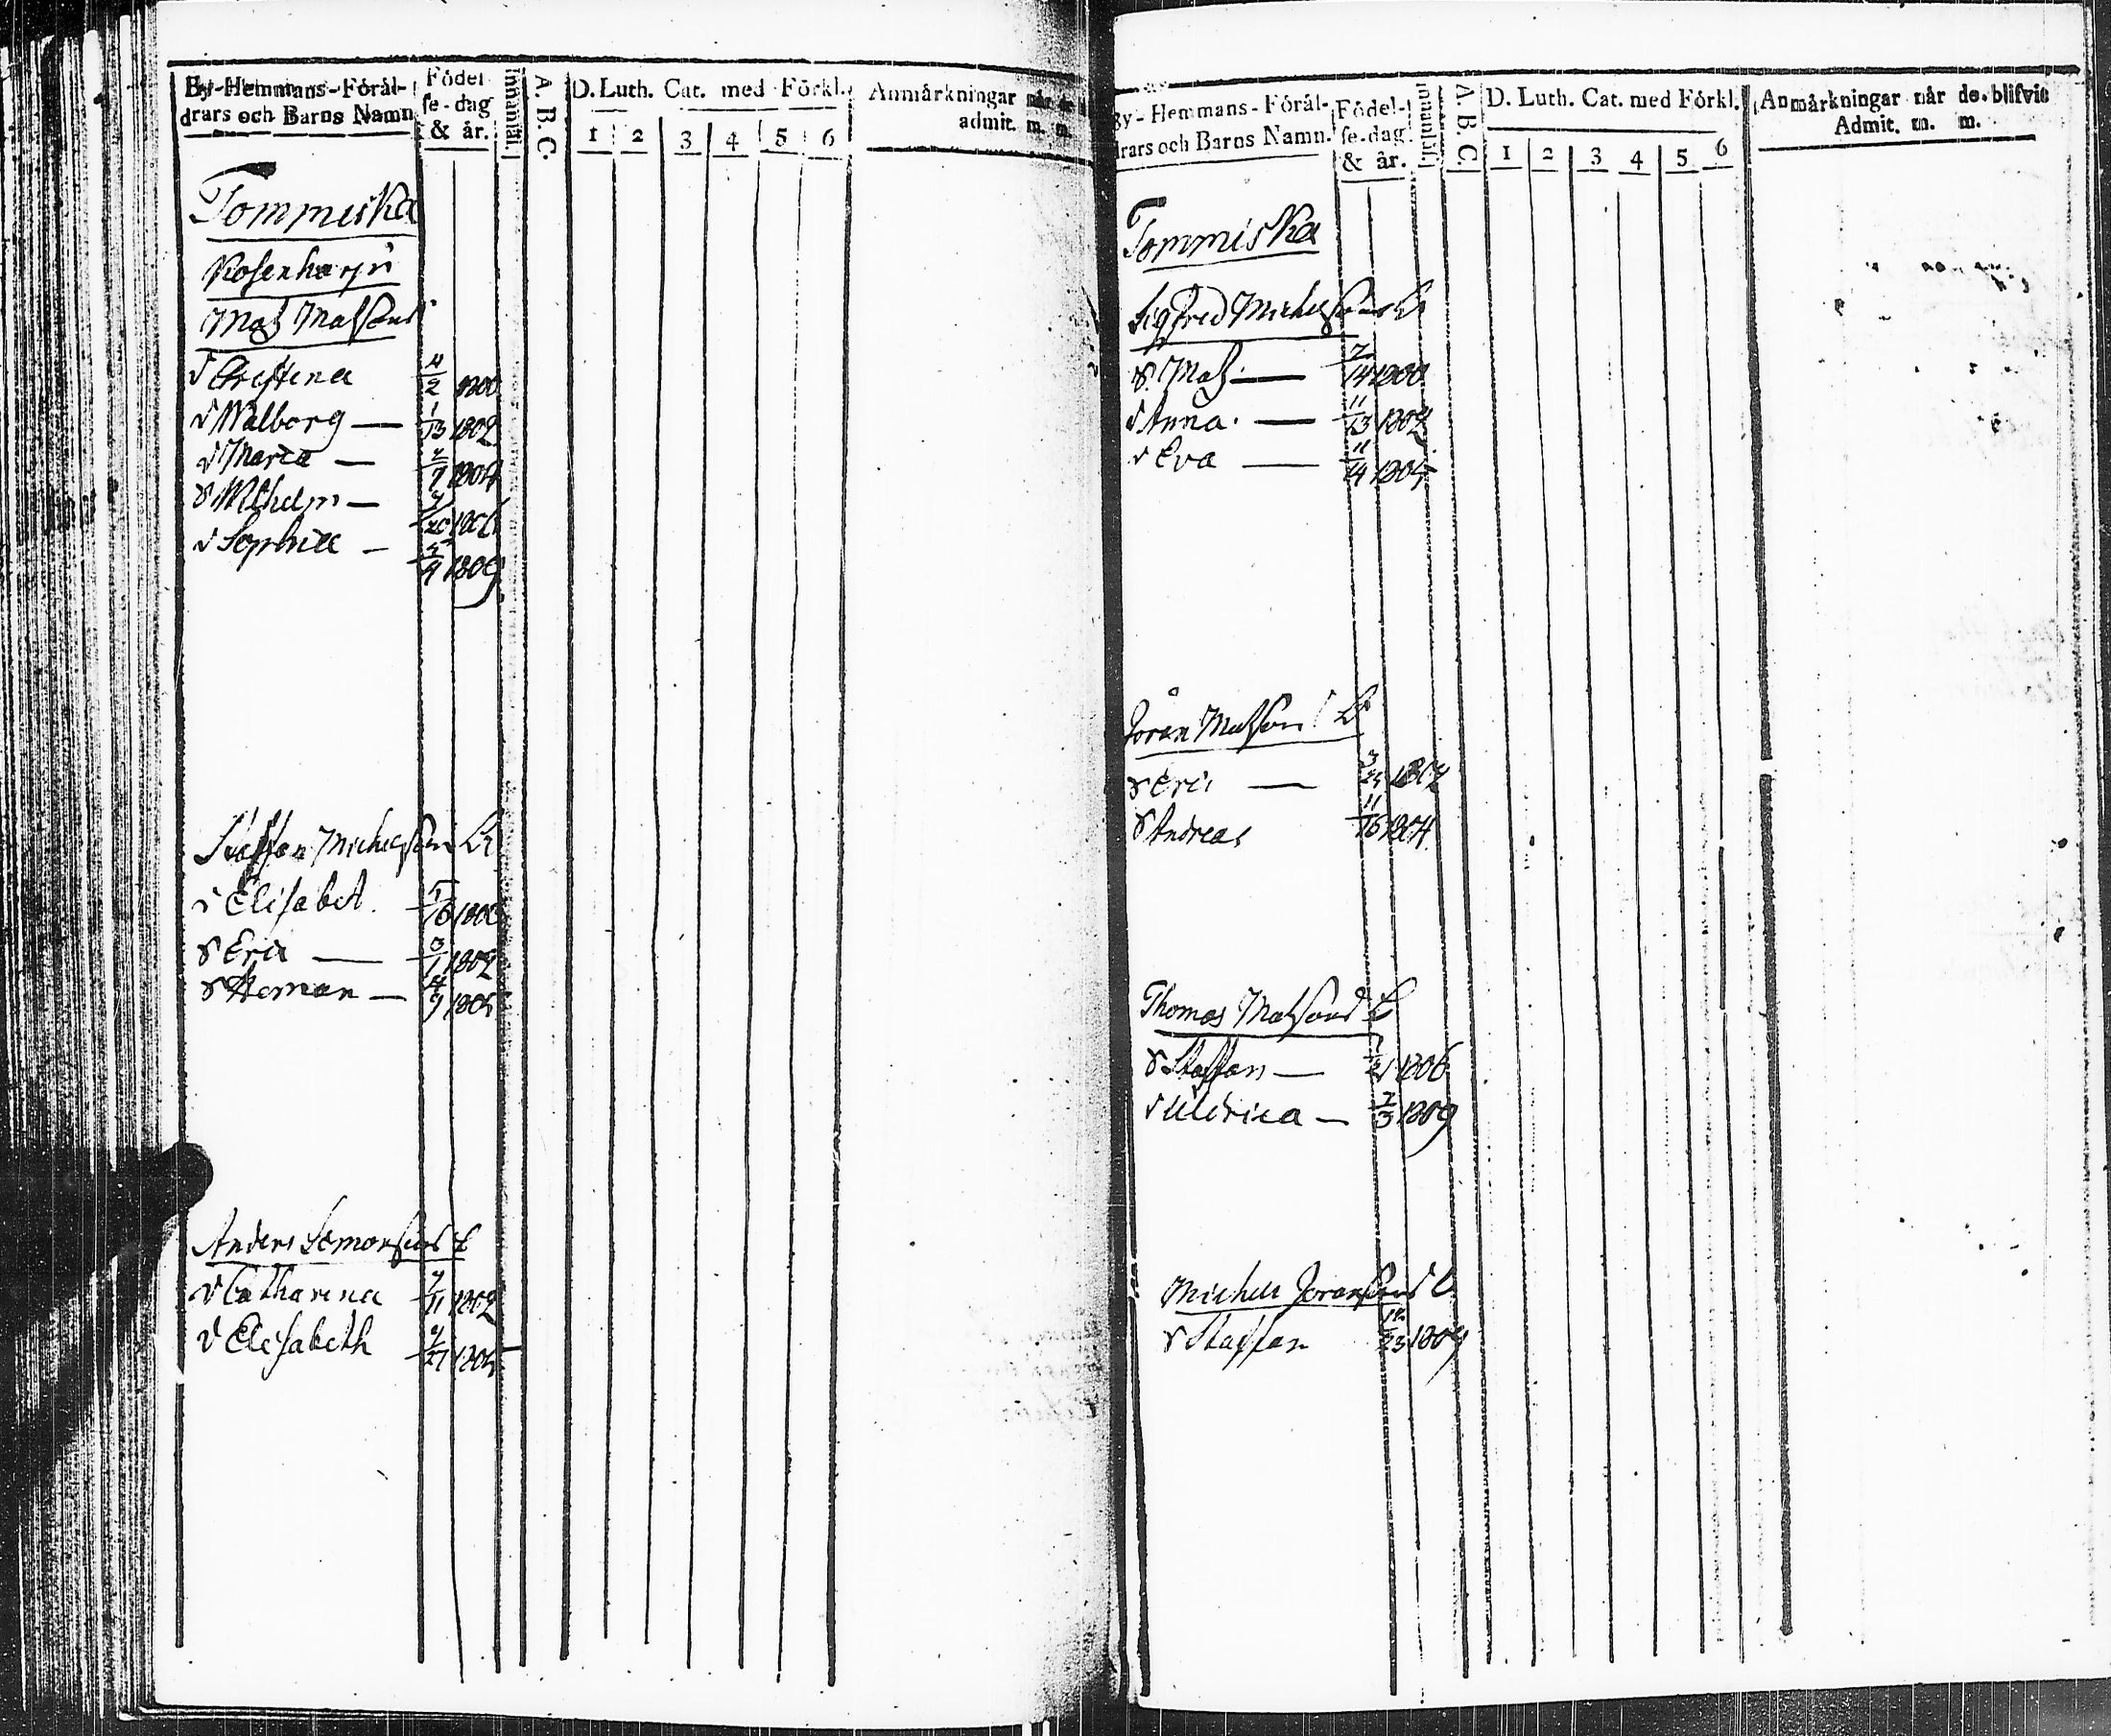 By-Hemmans-Föräl-
drars och Barns Namn
Födel
se-dag
& år.
Innanläs.
A. B. C.
D. Luth. Cat. med Förkl.
1 2 3 4 5 6
Anmärkningar når de
admit. m. m.
Tommiska
Mats Matsons
d Christina 4/2 1800
d Walborg — 1/13 1802
d Maria — 1804
s Wilhelm — 1806
d Sophia — 1809
Staffan Michelsons
d Elisabet. 1800
s Eric — 3/1 1802
s Herman — 4/9 1805
Anders Simonsons
d Catharina 1802
d Elisabeth 1805
By-Hemmans-Föräl-
drars och Barns Namn.
Födel-
se-dag
& år.
Innanläs.
A. B. C.
D. Luth. Cat. med Förkl.
1 2 3 4 5 6
Anmärkningar når de blifvit
Admit. m. m.
Tommiska
Sigfred Michelsons
s Mats — 1800
d Anna — 11/13 1802
d Eva — 1805
Jöran Matsons
s Eric — 1802
s Andreas 11/16 1804
Thomas Matsons
s Staffan — 1806
d Ulrica — 1809
Michel Joransons
s Staffan 1809